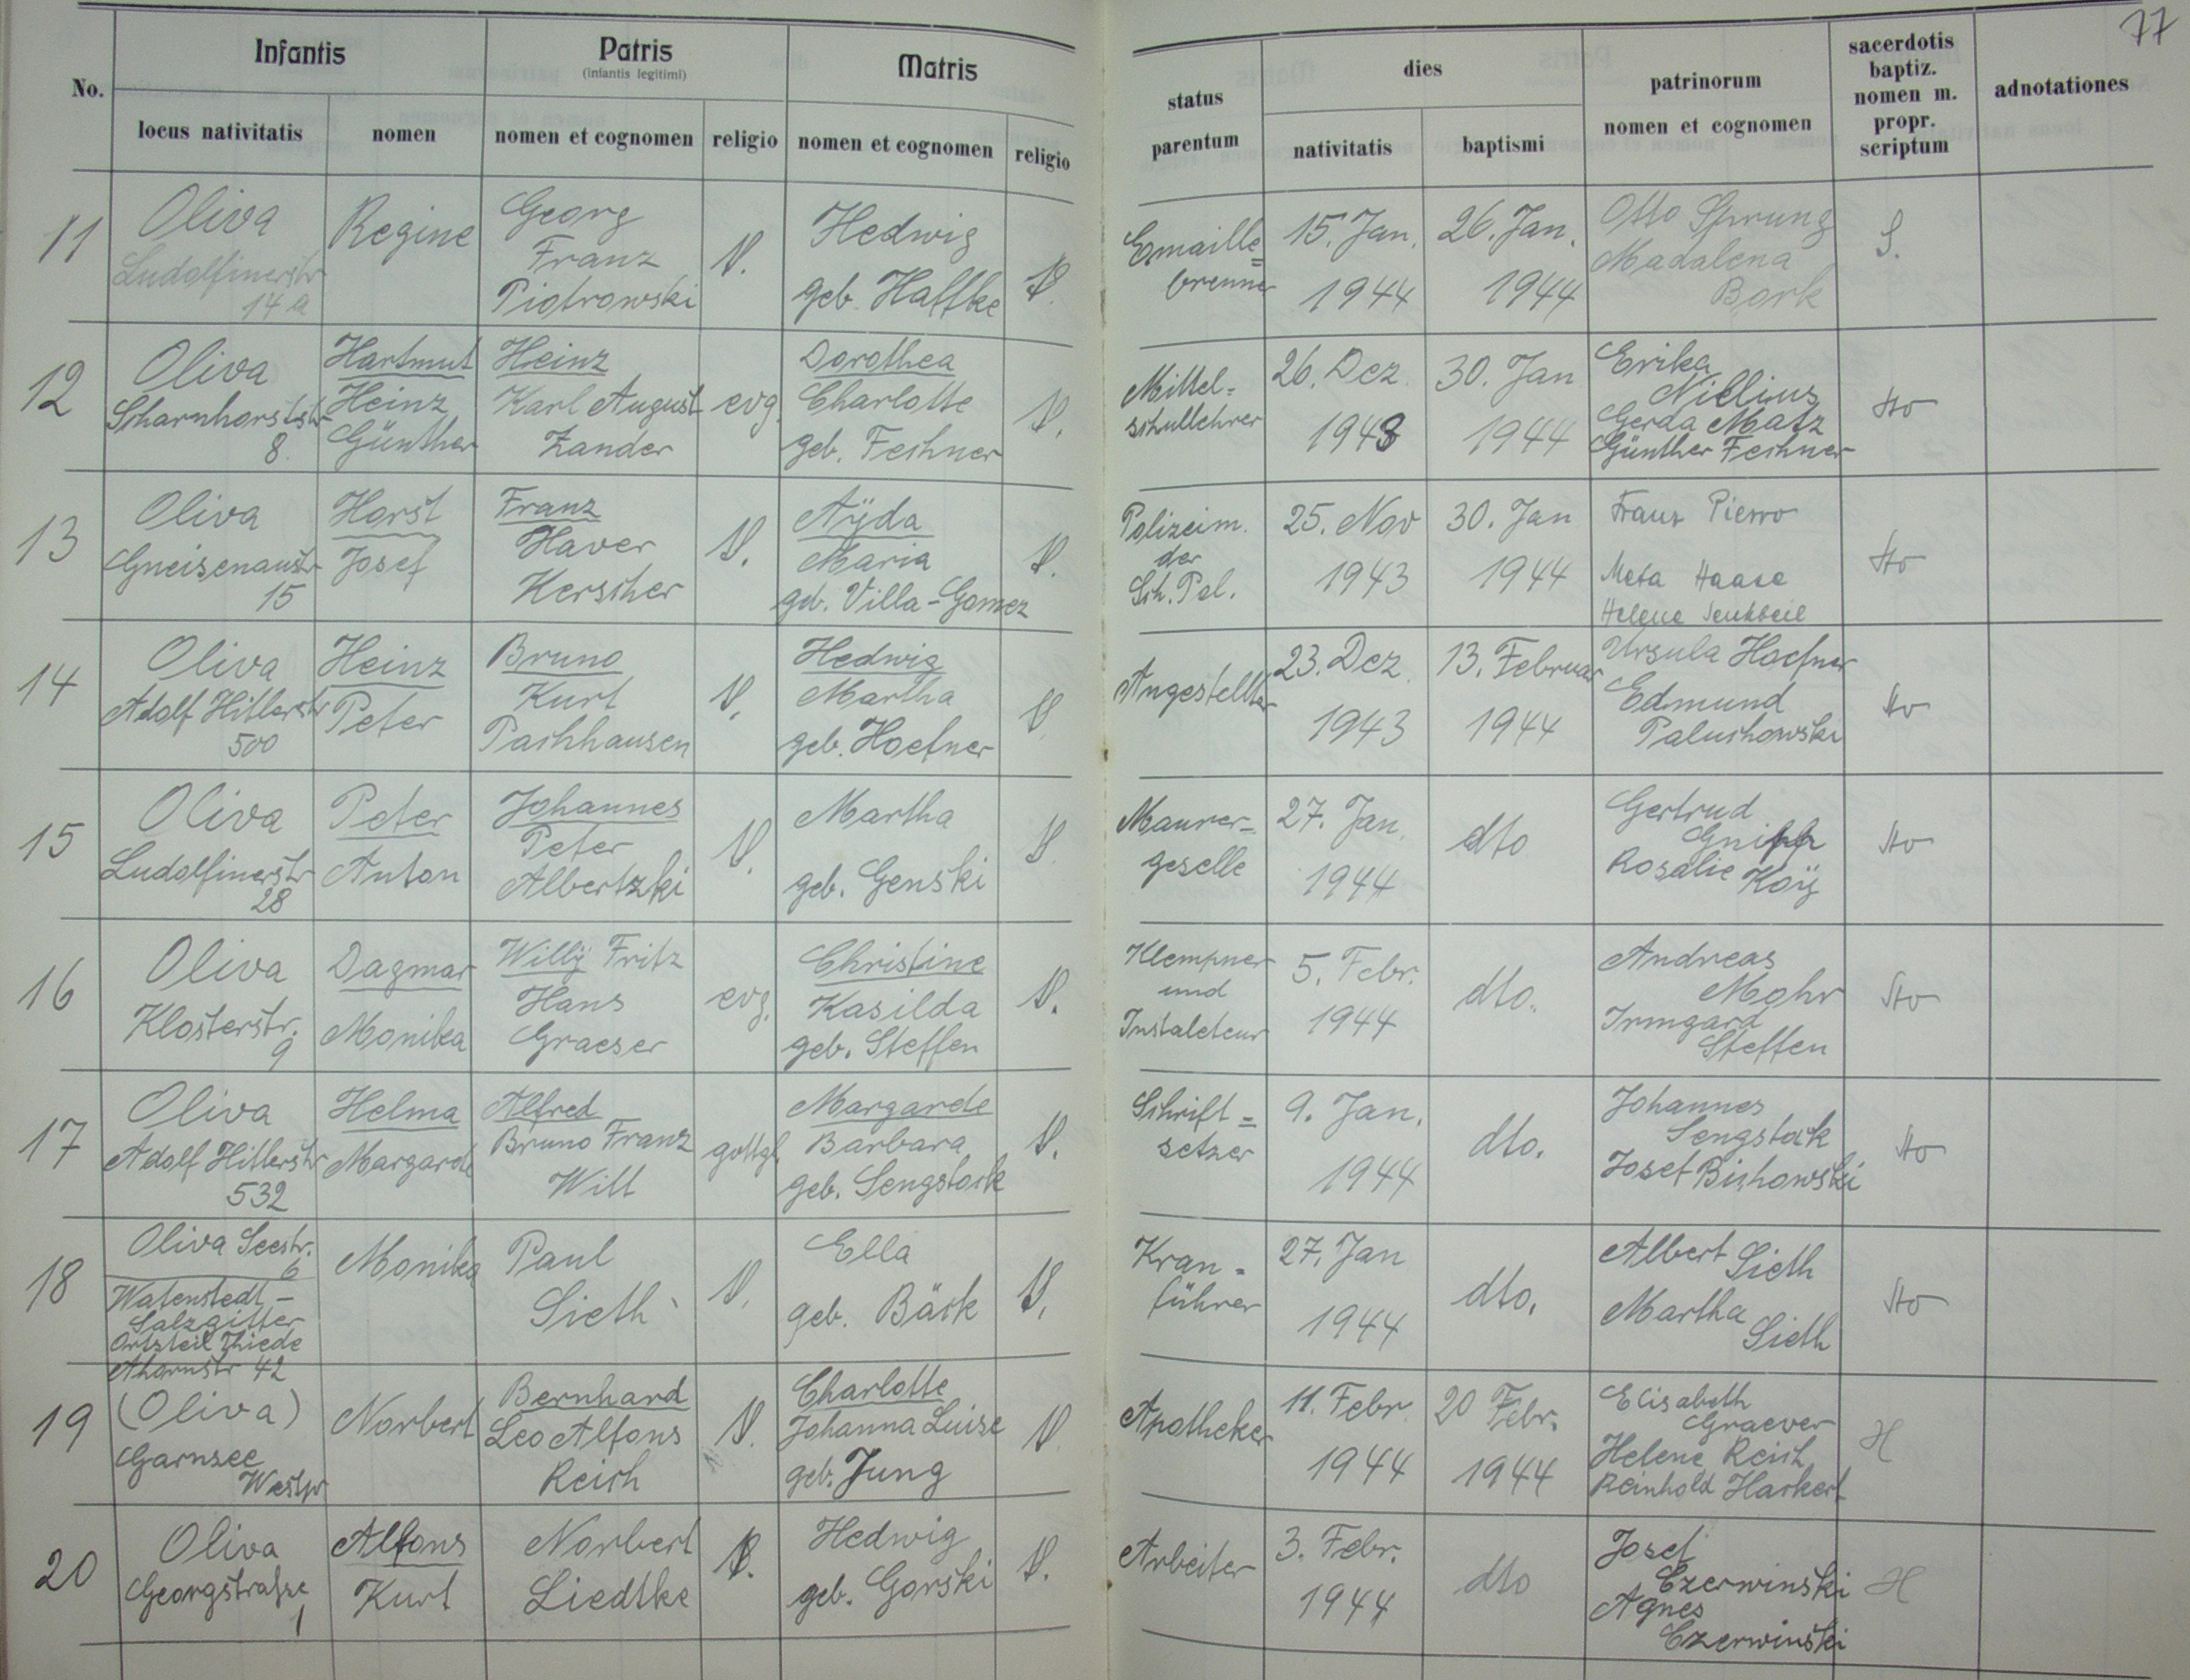 77
Infantis
Patris
(infantis legitimi)
Matris
No.
locus nativitatis
nomen
nomen et cognomen
religio
nomen et cognomen
religio
status
parentum
dies
nativitatis
baptismi
patrinorum
nomen et cognomen
sacerdotis
baptiz.
nomen m.
propr.
scriptum
adnotationes
11
Oliva
Ludolfinerstr
14a
Regine
Georg
Franz
Piotrowski
Hedwig
geb. Haffke
Emaille=
brenner
15. Jan.
1944
26. Jan.
1944
Otto Sprung
Madalena
Bork
S.
12
Oliva
Scharnhorststr
8.
Hartmut
Heinz
Günther
Heinz
Karl August
Zander
evg.
Dorothea
Charlotte
geb. Fechner
Mittel=
schullehrer
26. Dez.
1943
30. Jan
1944
Erika
Nielius
Gerda Matz
Günther Fechner
13
Oliva
Gneisenaustr
15
Horst
Josef
Franz
Xaver
Kerscher
Aÿda
Maria
geb. Villa-Gomez
Polizeim.
der
Sch. Pol.
25. Nov
1943
30. Jan
1944
Franz Pierro
Meta Haase
Helene Senkbeil
14
Oliva
Adolf Hitlerstr
500
Heinz
Peter
Bruno
Kurt
Pachhausen
Hedwig
Martha
geb. Hoefner
Angestellter
23. Dez.
1943
13. Februar
1944
Ursula Hoefner
Edmund
Paluchowski
15
Oliva
Ludolfinerstr
28
Peter
Anton
Johannes
Peter
Albertzki
Martha
geb. Genski
Maurer-
geselle
27. Jan.
1944
dto
Gertrud
Gnipp
Rosalie Koÿ
16
Oliva
Klosterstr.
9
Dagmar
Monika
Willÿ Fritz
Hans
Graeser
evg.
Christine
Kasilda
geb. Steffen
Klempner
und
Instaleteur
5. Febr.
1944
dto.
Andreas
Mohr
Irmgard
Steffen
17
Oliva
Adolf Hitlerstr
532
Helma
Margarete
Alfred
Bruno Franz
Will
gottgl.
Margarete
Barbara
geb. Sengstock
Schrift=
setzer
9. Jan.
1944
dto.
Johannes
Sengstock
Josef Bichowski
18
Oliva Seestr.
6
Watenstedt-
Salzgitter
Ortsteil Thiede
Ahornstr 42
Monika
Paul
Sieth
Ella
geb. Bäck
Kran=
führer
27. Jan
1944
dto.
Albert Sieth
Martha
Sieth
19
(Oliva)
Garnsee
Westpr
Norbert
Bernhard
Leo Alfons
Reich
Charlotte
Johanna Luise
geb. Jung
Apotheker
11. Febr.
1944
20 Febr.
1944
Elisabeth
Graever
Helene Reich
Reinhold Harkert
H
20
Oliva
Georgstraße
1
Alfons
Kurt
Norbert
Liedtke
Hedwig
geb. Gorski
Arbeiter
3. Febr.
1944
dto
Josef
Czerwinski
Agnes
Czerwinski
H